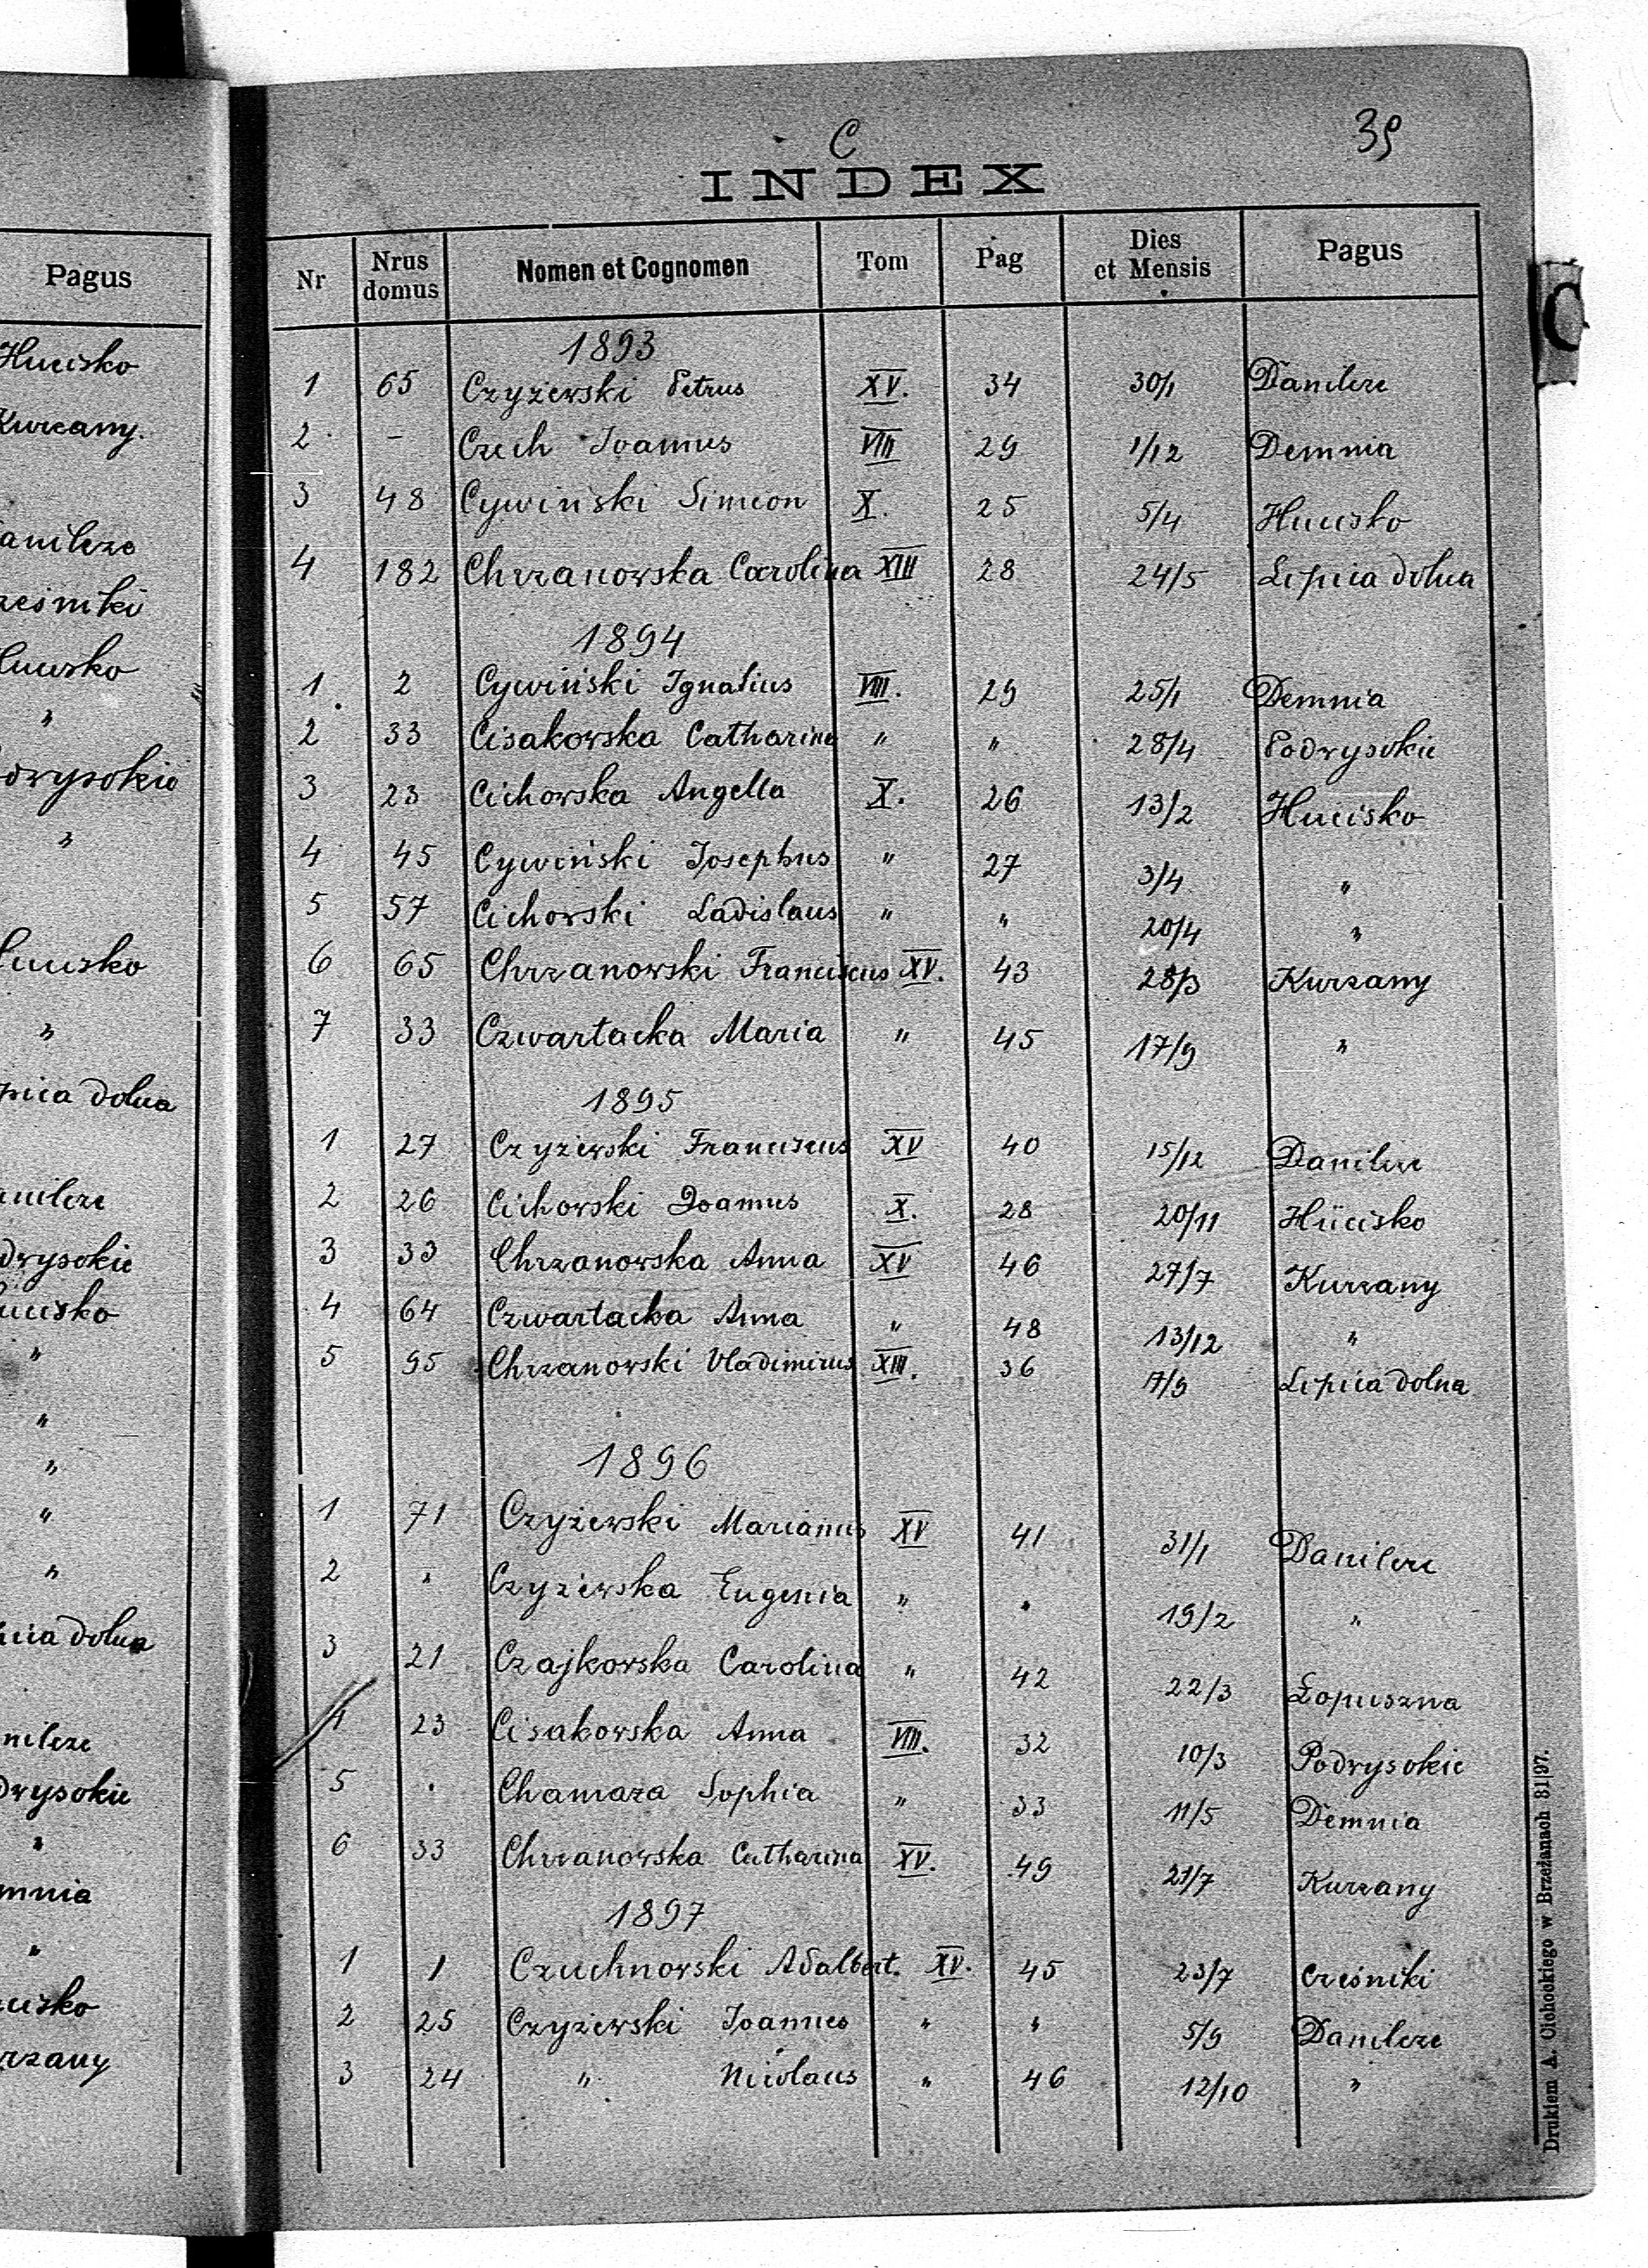 Pagus
Hucisko
Kurzany.
anilcze
ześniki
Hucisko
"
odwysokie
"
Hucisko
"
pica dolna
anilcze
dwysokie
ucisko
"
"
"
"
"
ica dolna
nilcze
dwysokie
"
mnia
"
cisko
rzany
C
39
INDEX
Nr Nrus domus Nomen et Cognomen Tom Pag Dies et Mensis Pagus
1893
1 65 Czyżewski Petrus XV. 34 30/1 Danilcze
2 - Czech Joannus VIII 29 1/12 Demnia
3 48 Cywiński Simeon X. 25 5/4 Hucisko
4 182 Chrzanowska Carolina XIII 28 24/5 Lipica dolna
1894
1 2 Cywiński Ignatius VIII. 29 25/1 Demnia
2 33 Cisakowska Catharina " " 28/4 Podwysokie
3 23 Cichowska Angella X. 26 13/2 Hucisko
4 45 Cywiński Josephus " 27 3/4 "
5 57 Cichowski Ladislaus " " 20/4 "
6 65 Chrzanowski Franciscus XV. 43 28/3 Kurzany
7 33 Czwartacka Maria " 45 17/9 "
1895
1 27 Czyżewski Franciscus XV 40 15/12 Danilcze
2 26 Cichowski Joannus X. 28 20/11 Hucisko
3 33 Chrzanowska Anna XV 46 27/7 Kurzany
4 64 Czwartacka Anna " 48 13/12 "
5 95 Chrzanowski Vladimirus XIII. 36 17/9 Lipica dolna
1896
1 71 Czyżewski Marianus XV 41 31/1 Danilcze
2 " Czyżewska Eugenia " " 19/2 "
3 21 Czajkowska Carolina " 42 22/3 Łopuszna
4 23 Cisakowska Anna VIII. 32 10/3 Podwysokie
5 . Chamaza Sophia " 33 11/5 Demnia
6 33 Chrzanowska Catharina XV. 49 21/7 Kurzany
1897
1 1 Czuchnowski Adalbert. XV. 45 23/7 Cześniki
2 25 Czyżewski Joannes " " 5/9 Danilcze
3 24 " Nicolaus " 46 12/10 "
C
Drukiem A. Olchockiego w Brzeżanach 81|97.